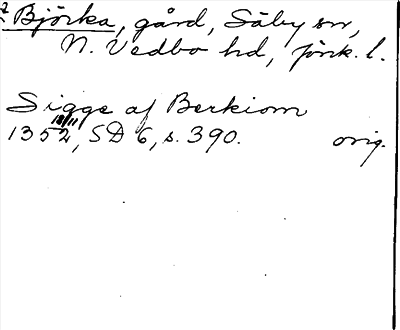 Björka, gård, Säby sn,
N. Vedbo hd, Jönk. l.
Sigge af Berkiom
18/11
1352, SD 6, s. 390. orig.